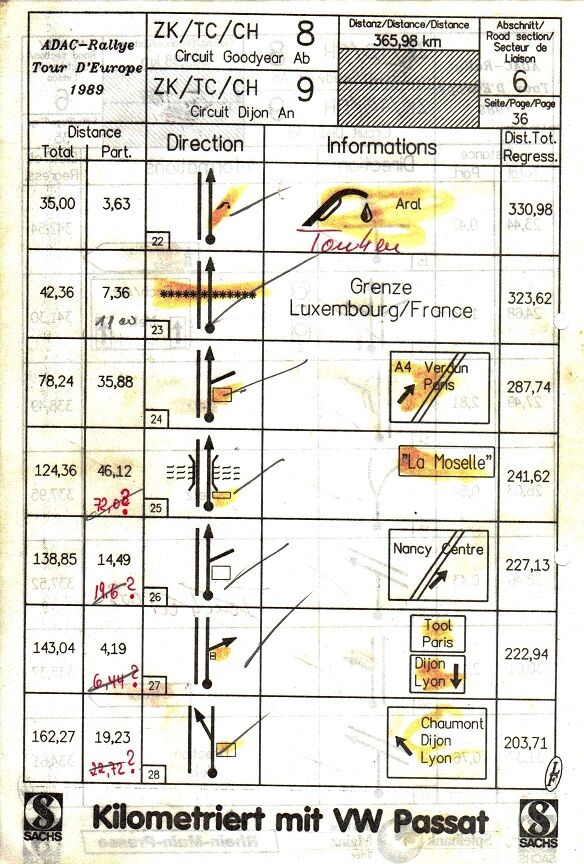 ADAC-Rallye
Tour D'Europe
1989
ZK/TC/CH 8
Circuit Goodyear Ab
ZK/TC/CH 9
Circuit Dijon An
Distanz/Distance/Distance
365,98 km
Abschnitt/
Road section/
Secteur de
Liaison
6
Seite/Page/Page
36
Distance
Total Part.
Direction
Informations
Dist.Tot.
Regress.
35,00 3,63
22
Aral
Tanken
330,98
42,36 7,36
23
Grenze
Luxembourg/France
323,62
78,24 35,88
24
A4 Verdun
Paris
287,74
124,36 46,12
72,0?
25
"La Moselle"
241,62
138,85 14,49
19,6?
26
Nancy Centre
227,13
143,04 4,19
6,44?
27
Tool
Paris
Dijon
Lyon
222,94
162,27 19,23
22,72?
28
Chaumont
Dijon
Lyon
203,71
SACHS
Kilometriert mit VW Passat
SACHS